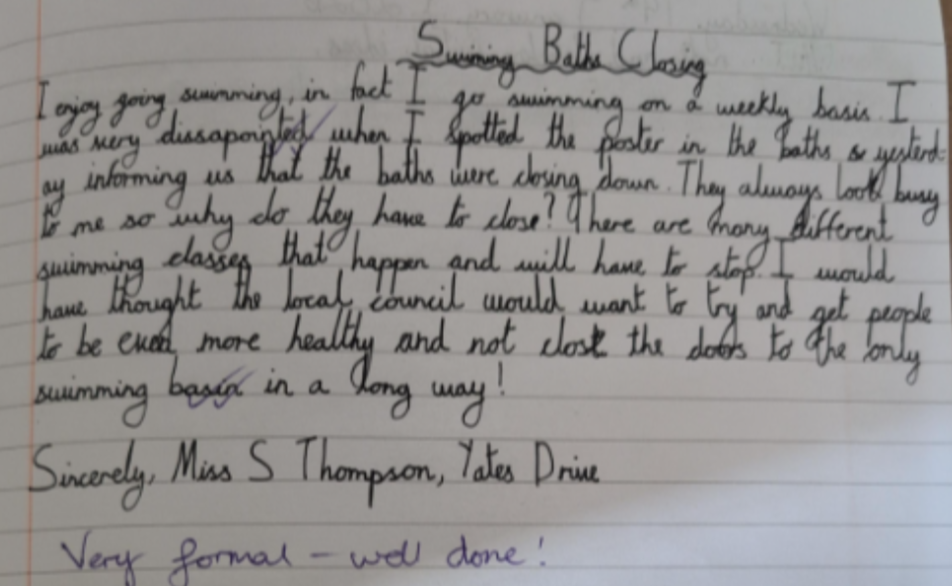 Swimming Baths Closing
I enjoy going swimming, in fact I go swimming on a weekly basis. I
was very dissapointed when I spotted the poster in the baths yesterd-
ay informing us that the baths were closing down. They always look busy
to me so why do they have to close? There are many different
swimming classes that happen and will have to stop. I would
have thought the local council would want to try and get people
to be even more healthy and not close the doors to the only
swimming basin in a long way!
Sincerely, Miss S Thompson, Yates Drive
Very formal - well done!